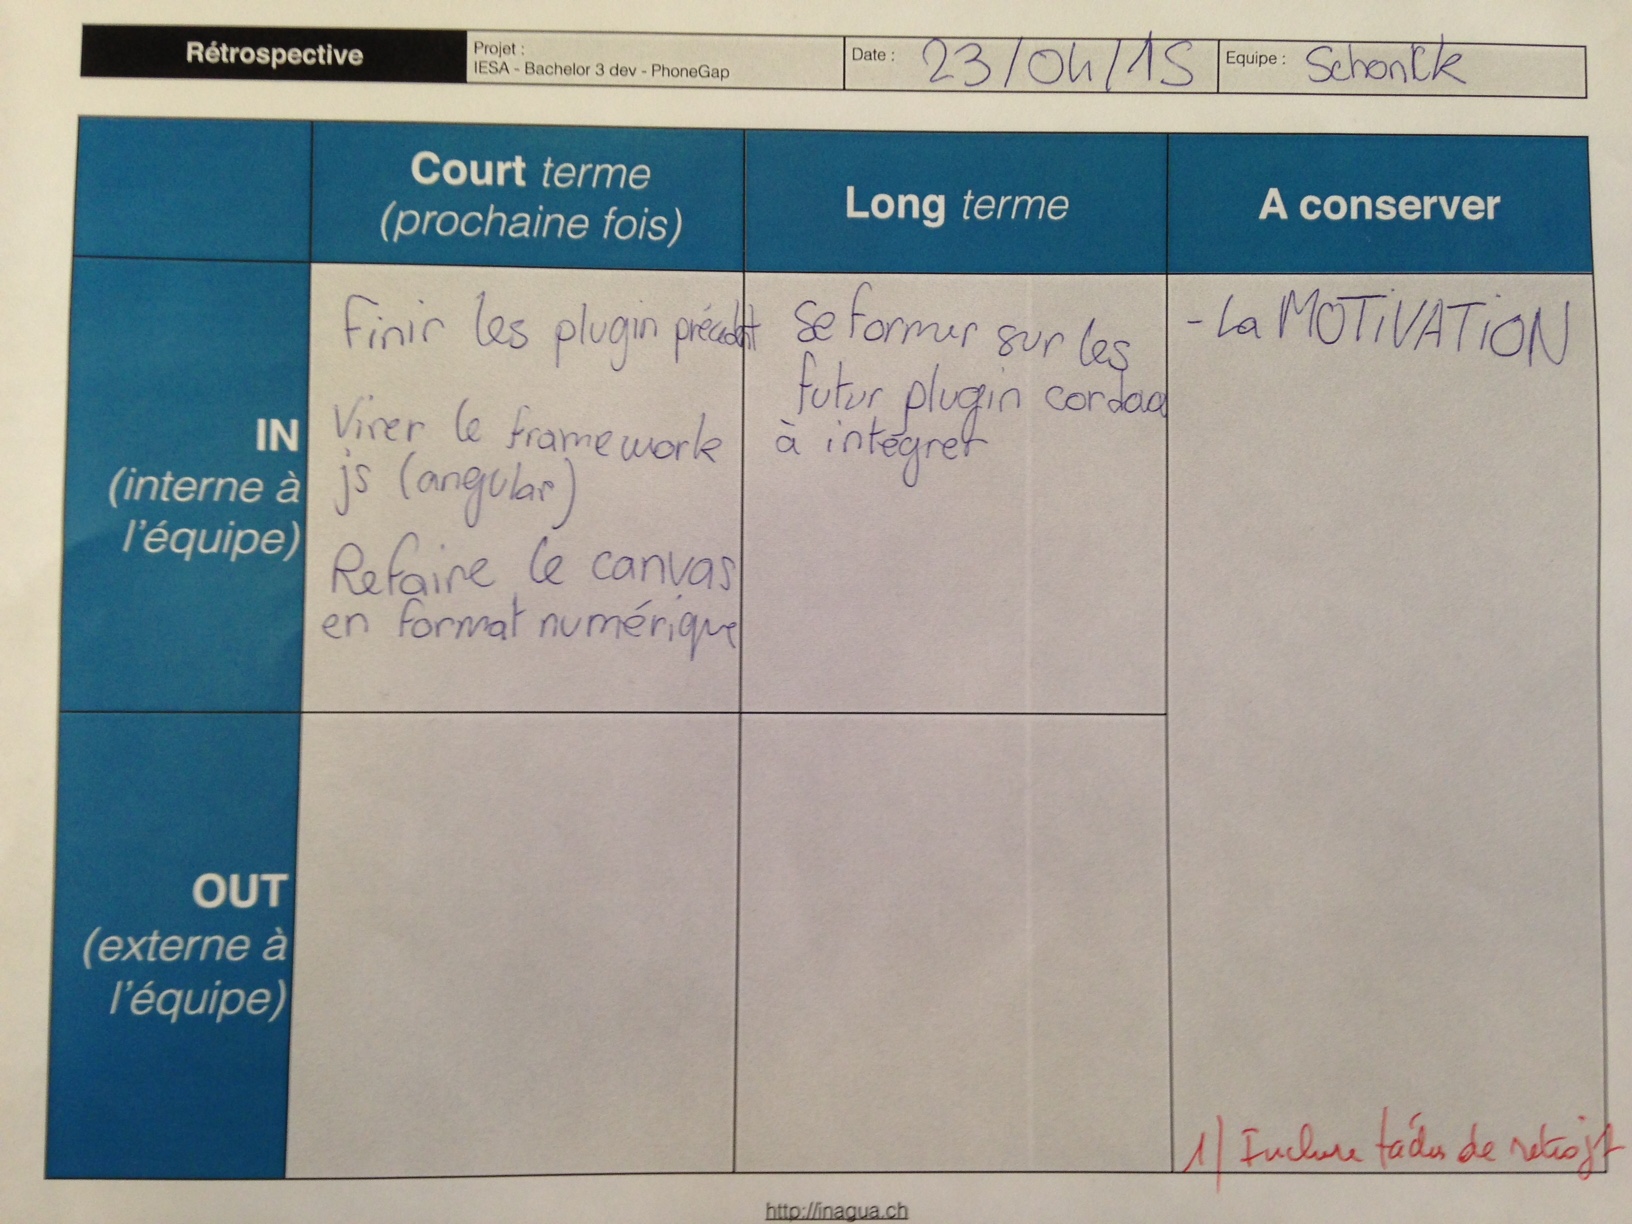 Rétrospective
Projet :
IESA - Bachelor 3 dev - PhoneGap
Date : 23/04/15
Equipe : Schonck
Court terme
(prochaine fois)
Long terme
A conserver
IN
(interne à
l'équipe)
Finir les plugin
Virer le framework
js (angular)
Refaire le canvas
en format numérique
Se former sur les
futur plugin cordova
à intégrer
- La MOTiVATiON
OUT
(externe à
l'équipe)
1) Inclure de
http://inagua.ch